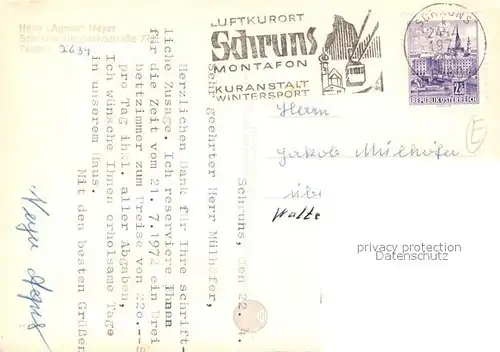 Haus "Agnes" Meyer
2634
LUFTKURORT
Schruns
MONTAFON
KURANSTALT
WINTERSPORT
SCHRUNS
REPUBLIK ÖSTERREICH
Herrn
Jakob Mülhöfer
Schruns, den 22. 4.
Sehr geehrter Herr Mülhöfer,
Herzlichen Dank für Ihre schrift-
liche Zusage. Ich reserviere Ihnen
für die Zeit vom 21. 7. 1972 ein Drei
bettzimmer zum Preise von 220.--S
pro Tag inkl. aller Abgaben,
Ich wünsche Ihnen erholsame Tage
in unserem Haus.
Mit den besten Grüßen
Meyer Agnes
privacy protection
Datenschutz